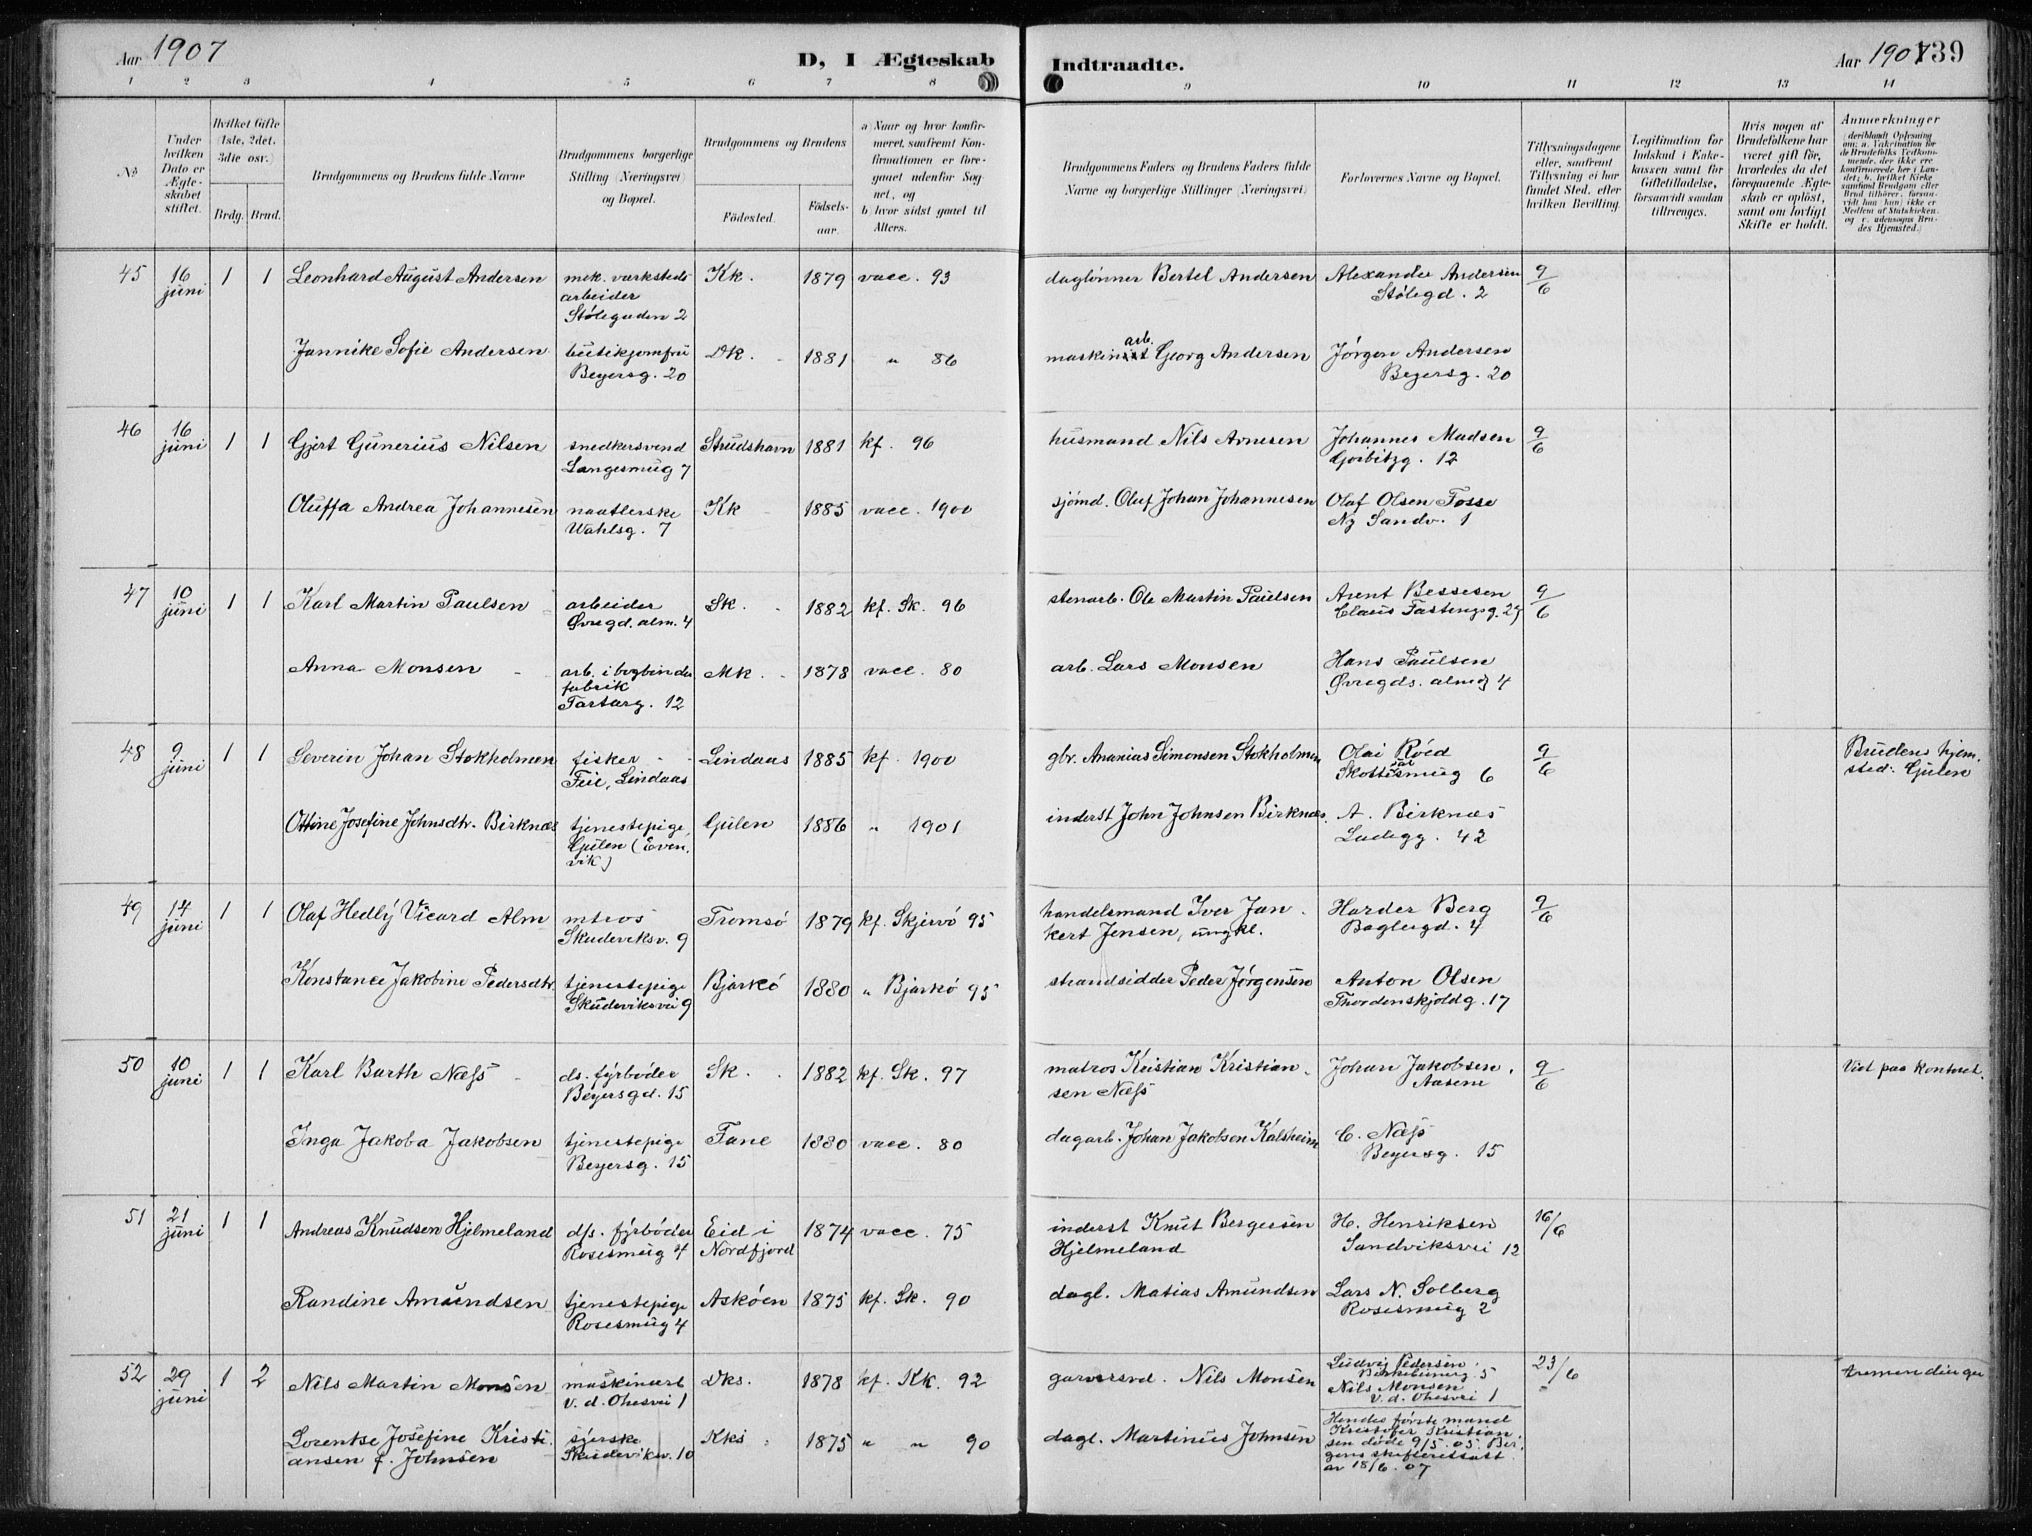 Aar 1907
D, I Ægteskab
Indtraadte.
Aar 1907
139
1 2 3 4 5 6 7 8
9 10 11 12 13 14
No
Under hvilken Dato er Ægteskabet stiftet.
Hvilket Gifte (1ste, 2det, 3die osv.)
Brdg. Brud.
Brudgommens og Brudens fulde Navne
Brudgommens borgerlige Stilling (Næringsvei) og Bopæl.
Brudgommens og Brudens
Födested.
Födselsaar.
a) Naar og hvor konfirmeret, samfremt Konfirmationen er foregaaet udenfor Sognet, og
b) hvor sidst gaaet til Alters.
Brudgommens Faders og Brudens Faders fulde Navne og borgerlige Stillinger (Næringsvei)
Forlovernes Navne og Bopæl.
Tillysningsdagene eller, saafremt Tillysning ei har fundet Sted, efter hvilken Bevilling.
Legitimation for Indskud i Enkekassen samt for Giftetilladelse, forsaavidt saadan tiltrænges.
Hvis nogen af Brudefolkene har været gift før, hvorledes da det foregaaende Ægteskab er opløst, samt om lovligt Skifte er holdt.
Anmærkninger
45 16 juni 1 1 Leonhard August Andersen
mek. verksteds arbeider Stølegaden 2
Kk. 1879 vacc. 93
daglønner Bertel Andersen
Alexander Andersen Stølegd. 2
9/6
Jannike Sofie Andersen
butikjomfru Beyersg. 20
Dk. 1881 " 86
maskinist arb. Georg Andersen
Jørgen Andersen Beyersg. 20
46 16 juni 1 1 Gjert Gunerius Nilsen
snedkersvend Langesmug 7
Strudshavn 1881 kf. 96
husmand Nils Arnesen
Johannes Madsen Gørbitzg. 12
9/6
Oluffa Andrea Johannesen
naatlerske Wahlsg. 7
Kk 1885 vacc. 1900
sjømd. Oluf Johan Johannesen
Olaf Olsen Fosse Ny Sandv. 1
47 10 juni 1 1 Karl Martin Paulsen
arbeider Øvregd. alm. 4
Sk. 1882 kf. Sk. 96
stenarb. Ole Martin Paulsen
Arent Bessesen Claus Fastingsg. 29
9/6
Anna Monsen
arb. i bogbinder fabrik Tartarg. 12
Mk. 1878 vacc. 80
arb. Lars Monsen
Hans Paulsen Øvregds. almg 4
48 9 juni 1 1 Severin Johan Stokholmen
fisker Feie, Lindaas
Lindaas 1885 kf. 1900
gbr. Ananias Simonsen Stokholmen
Olai Røed Skottesmug 6
9/6
Brudens hjemsted: Gulen
Ottine Josefine Johnsdtr. Birknæs
tjenestepige, Gulen (Evenvik)
Gulen 1886 " 1901
inderst John Johnsen Birknæs.
A. Birknæs Ladegg. 42
49 14 juni 1 1 Olaf Hedly Vicard Alm
mtros Skudeviksv. 9
Tromsö 1879 kf. Skjervö 95
handelsmand Iver Jankert Jensen, ungkl.
Harder Berg Baglergd. 4
9/6
Konstance Jakobine Pedersdtr.
tjenestepige Skudeviksvei 9
Bjarkö 1880 " Bjarkö 95
strandsidder Peder Jørgensen
Anton Olsen Thordenskjoldg. 17
50 10 juni 1 1 Karl Barth Næss
ds. fyrböder Beyersgd. 15
Sk. 1882 kf. Sk. 97
matros Kristian Kristiansen Næss
Johan Jakobsen, Aasene
9/6
Viet paa kontoret.
Inga Jakoba Jakobsen
tjenestepige Beyersg. 15
Fane 1880 vacc. 80
dagarb. Johan Jakobsen Kalsheim
C. Næss Beyersg. 15
51 21 juni 1 1 Andreas Knudsen Hjelmeland
ds. fyrböder Rosesmug 4
Eid i Nordfjord 1874 vacc. 75
inderst Knut Bergersen Hjelmeland
H. Henriksen Sandviksvei 12
16/6
Randine Amundsen
tjenestepige Rosesmug 4
Askøen 1875 kf. Sk. 90
dagl. Matias Amundsen
Lars N. Solberg Rosesmug 2
52 29 juni 1 2 Nils Martin Monsen
maskinarb V. d. Ohesvei 1
Dks. 1878 kf. Kk. 92
garversvd. Nils Monsen
Ludvig Pedersen 5
Nils Monsen V. d. Ohesvei 1
23/6
tremendinger
Lorentse Josefine Kristiansen f. Johnsen
syerske Skudeviksv. 10
Kks 1875 " " 90
dagl. Martinus Johnsen
Hendes første mand Kristofer Kristiansen døde 9/5.05. Bergens skifteretsatt. av 18/6.07